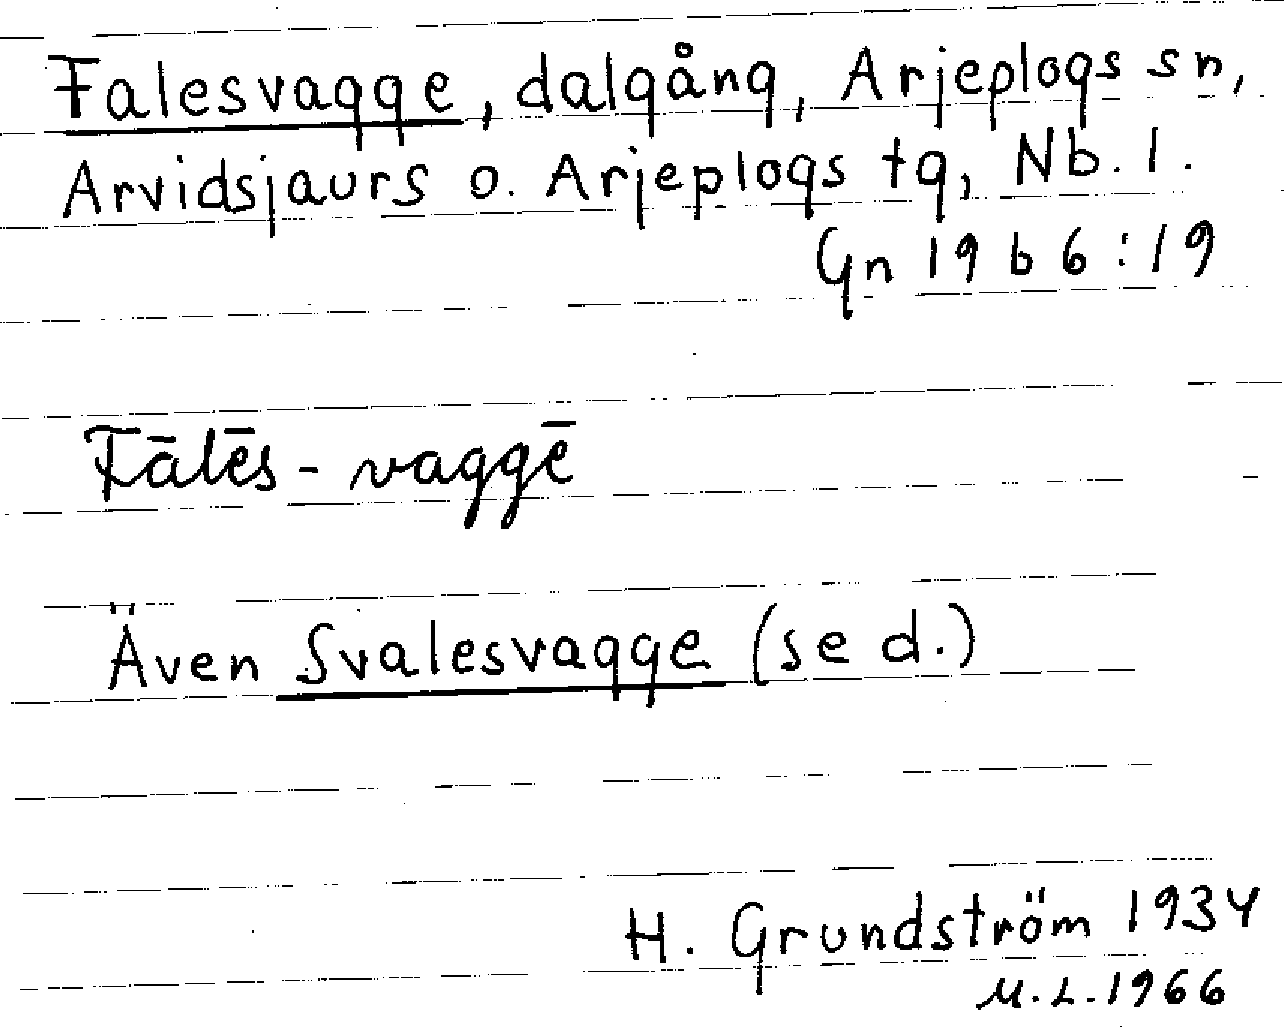 Falesvagge, dalgång, Arjeplogs sn,
Arvidsjaurs o. Arjeplogs tg, Nb. l.
Gn 19 b 6:19
Fālēs-vaggē
Även Svalesvagge (se d.)
H. Grundström 1934
M.L.1966